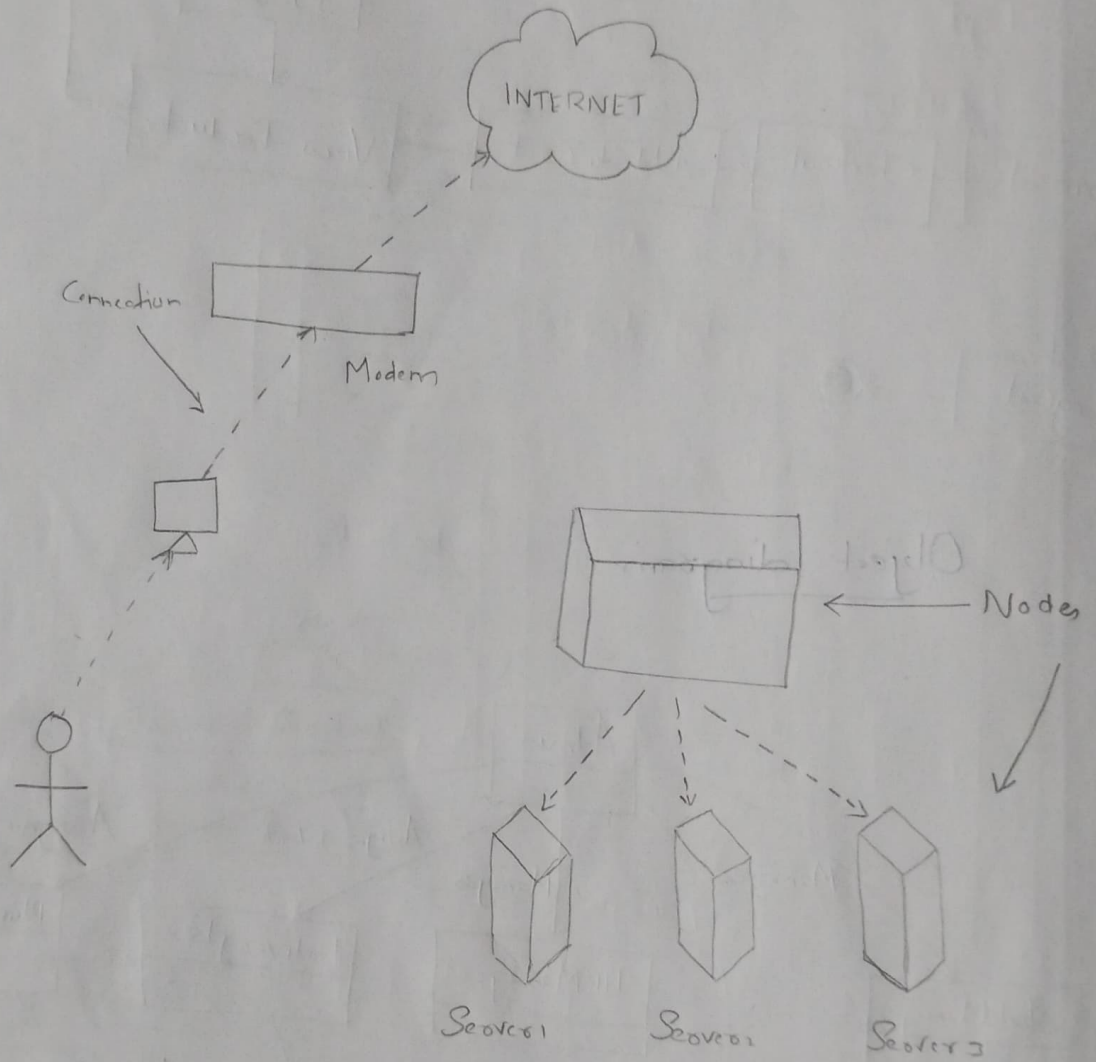 INTERNET
Connection
Modem
Nodes
Server1
Server2
Server3